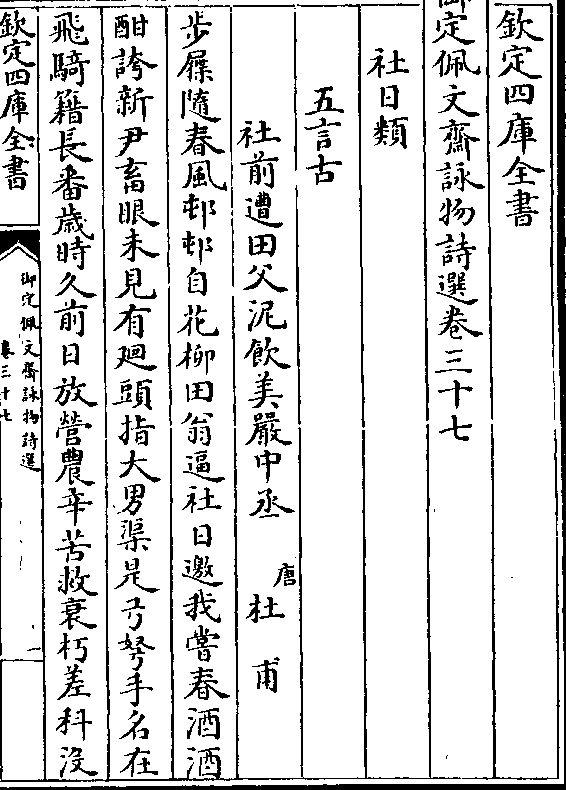 欽定四庫全書
御定佩文齋詠物詩選卷三十七
社日類
五言古
社前遭田父泥飲美嚴中丞 唐 杜甫
步屧隨春風邨邨自花柳田翁逼社日邀我嘗春酒酒
酣誇新尹畜眼未見有廻頭指大男渠是弓弩手名在
飛騎籍長番歲時久前日放營農辛苦救衰朽差科沒
欽定四庫全書
御定佩文齋詠物詩選
卷三十七
一